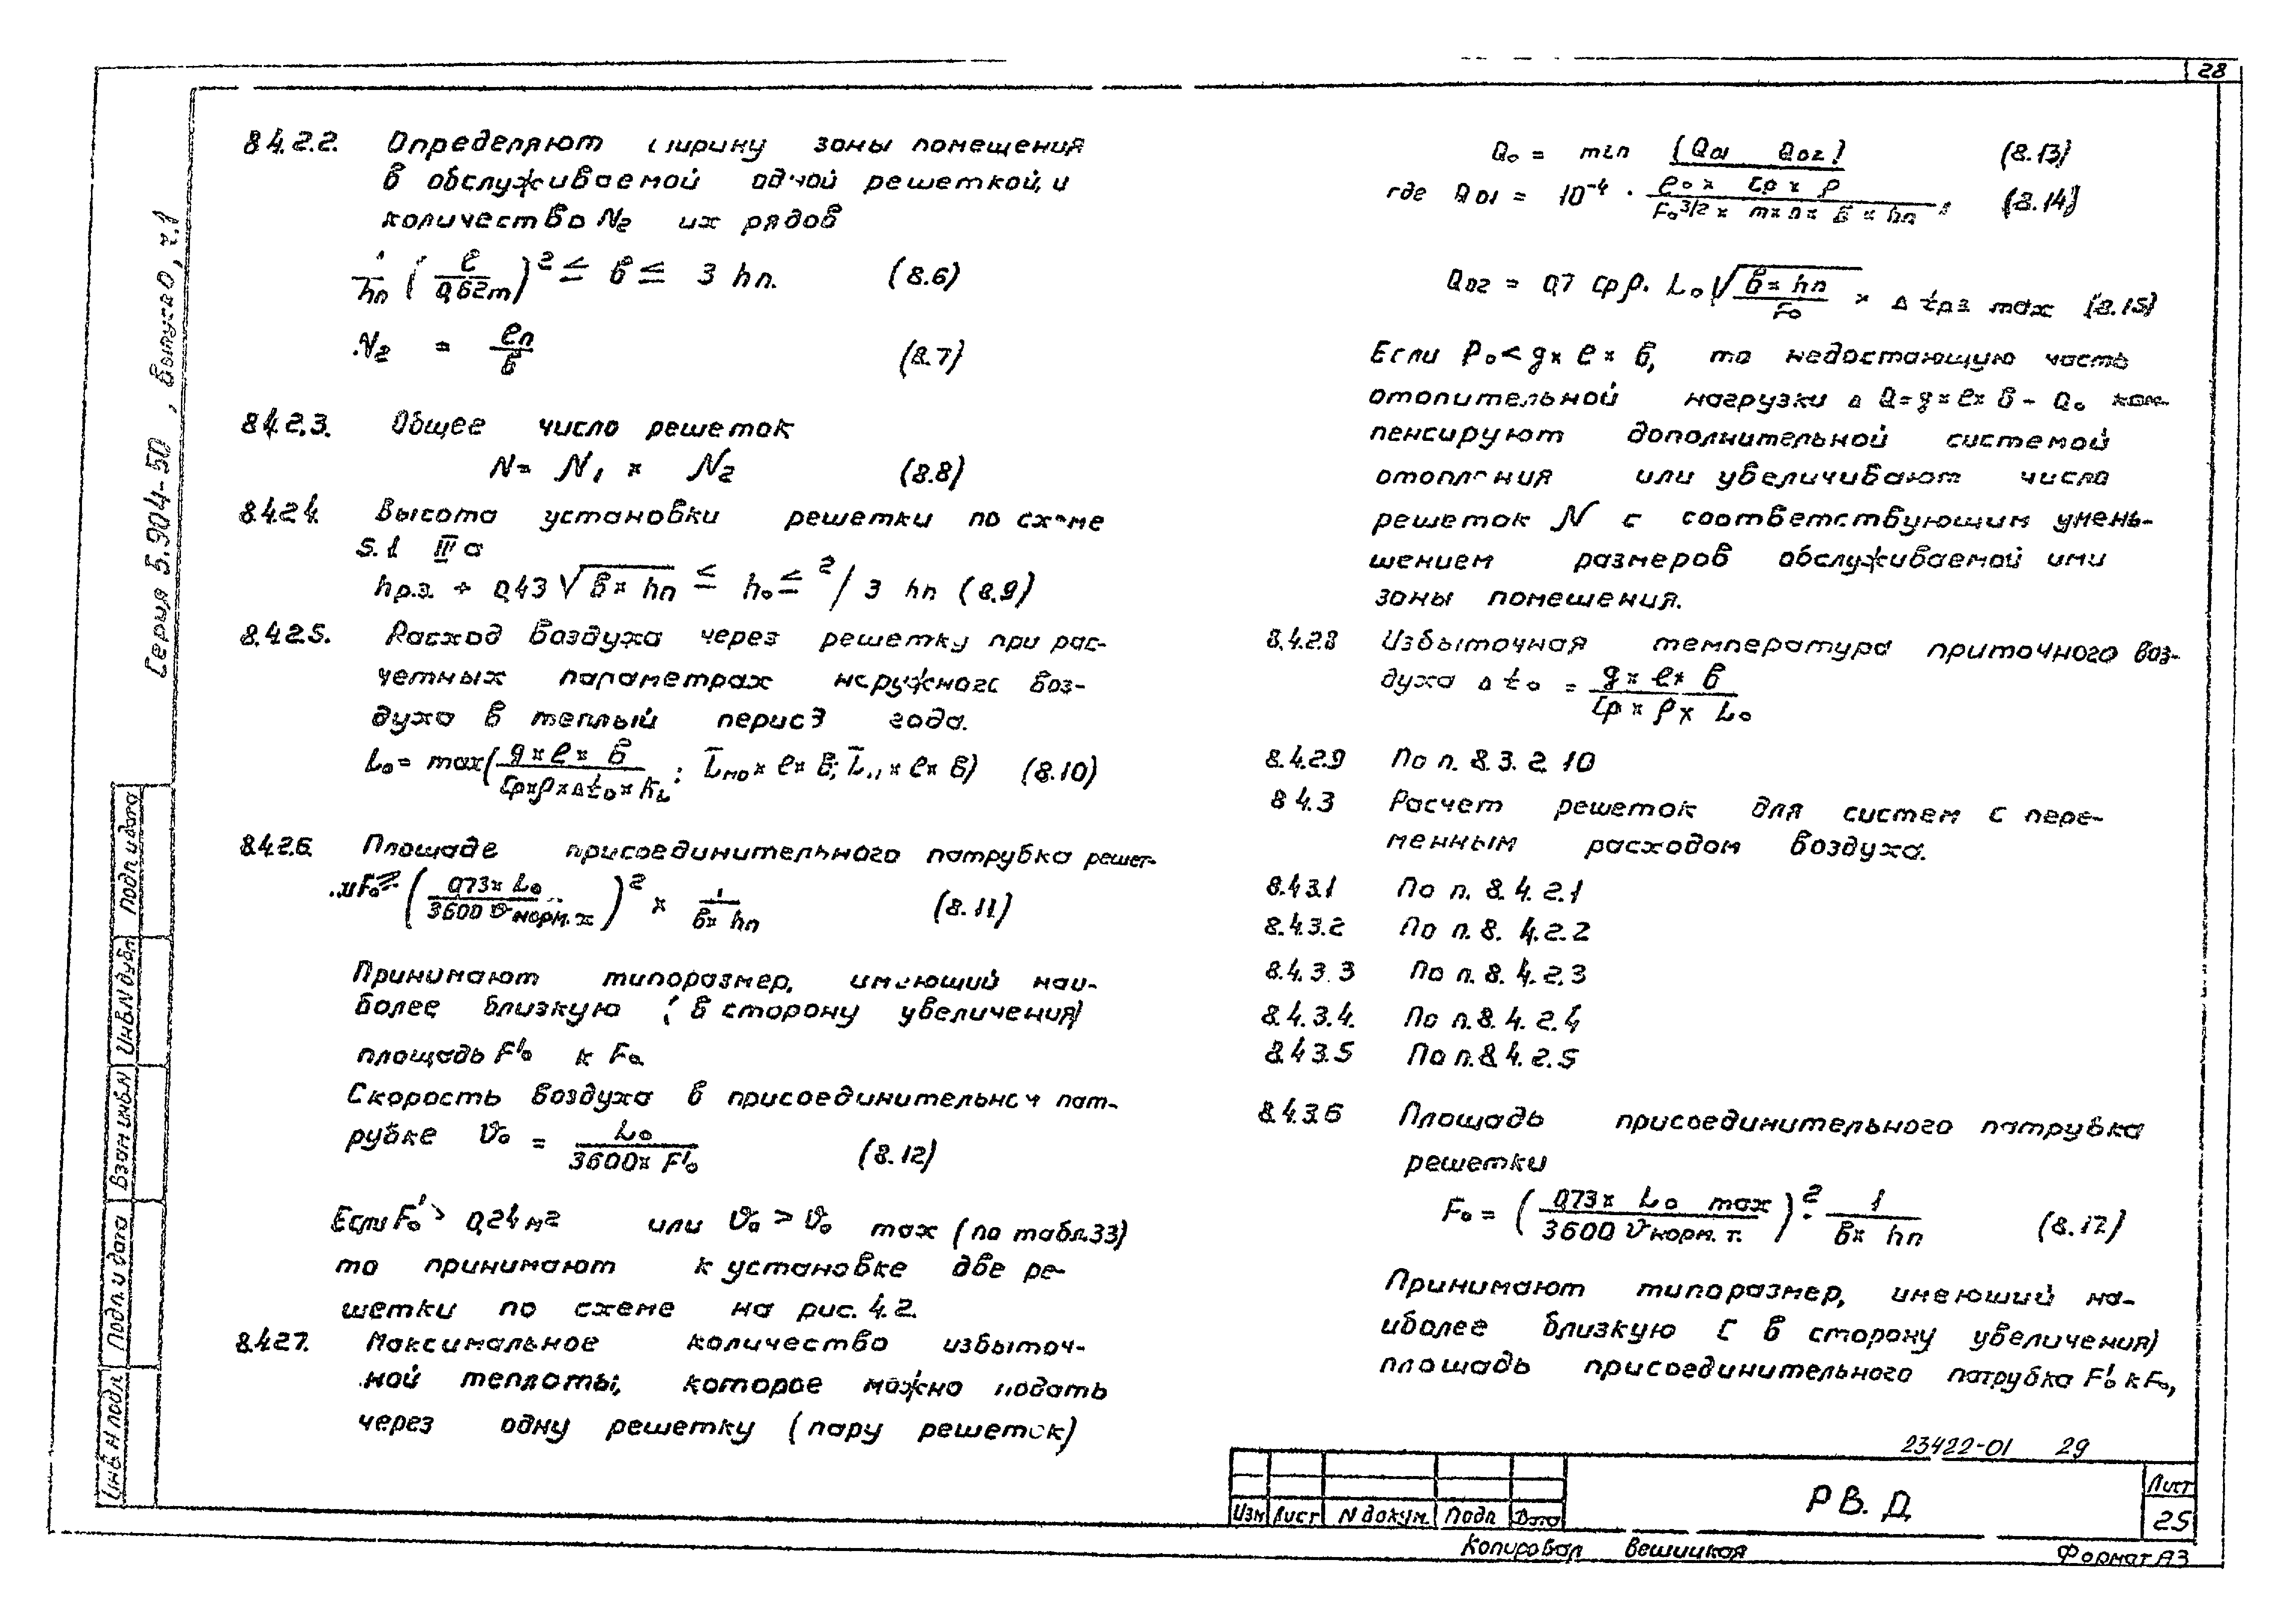 28
Серия 5.904-50, выпуск 0, ч.1
8.4.2.2. Определяют ширину зоны помещения
в обслуживаемой одной решеткой, и
количество N₂ их рядов
1/hп (ℓ/0,62m)² ≤ в ≤ 3 hп. (8.6)
N₂ = ℓп/в (8.7)
8.4.2.3. Общее число решеток
N = N₁ × N₂ (8.8)
8.4.2.4. Высота установки решетки по схеме
5.1 III а
hр.з. + 0,43 √(в × hп) ≤ h₀ ≤ 2/3 hп (8.9)
8.4.2.5. Расход воздуха через решетку при рас-
четных параметрах наружного воз-
духа в теплый период года.
L₀ = max(g × ℓ × в / Cр × ρ × Δt₀ × KL; L̅мо × ℓ × в; L̅ × ℓ × в) (8.10)
8.4.2.6. Площаде присоединительного патрубка решет-
ки F₀ ≥ (0,73 × L₀ / 3600 ϑнорм. х)² × 1/(в × hп) (8.11)
Принимают типоразмер, имеющий наи-
более близкую (в сторону увеличения)
площадь F'₀ к F₀
Скорость воздуха в присоединительном пат-
рубке ϑ₀ = L₀ / 3600 × F'₀ (8.12)
Если F₀' > 0,24 м² или ϑ₀ > ϑ₀ max (по табл.33)
то принимают к установке две ре-
шетки по схеме на рис. 4.2.
8.4.2.7. Максимальное количество избыточ-
ной теплоты, которое можно подать
через одну решетку (пару решеток)
Q₀ = min (Q₀₁ Q₀₂) (8.13)
где Q₀₁ = 10⁻⁴ · ℓ₀ × Cр × ρ / F₀^3/2 × m × n × в × hп, (8.14)
Q₀₂ = 0,7 Cр ρ. L₀ √(в × hп / F₀) × Δ tр.з. max (8.15)
Если P₀ < g × ℓ × в, то недостающую часть
отопительной нагрузки Δ Q = g × ℓ × в - Q₀ ком-
пенсируют дополнительной системой
отопления или увеличивают число
решеток N с соответствующим умень-
шением размеров обслуживаемой ими
зоны помешения.
8.4.2.8 Избыточная температура приточного воз-
духа Δ t₀ = g × ℓ × в / Cр × ρ × L₀
8.4.2.9 По п. 8.3.2.10
8 4.3 Расчет решеток для систем с пере-
менным расходом воздуха.
8.4 3.1 По п. 8.4.2.1
8.4.3.2 По п. 8.4.2.2
8.4.3.3 По п. 8.4.2.3
8.4.3.4. По п. 8.4.2.4
8.4 3.5 По п. 8.4.2.5
8.4.3.6 Площадь присоединительного патрубка
решетки
F₀ = (0,73 × L₀ max / 3600 ϑнорм. т.)² · 1/(в × hп) (8.17)
Принимают типоразмер, имеюший на-
иболее близкую ( в сторону увеличения)
площадь присоединительного патрубка F'₀ к F₀,
23422-01 29
Подп. и дата
Инв.N дубл
Взам инв.N
Подп. и дата
Инв N подл.
Изм Лист N докум. Подп Дата
РВ.Д
Лист
25
Копировал Вешицкая
Формат А3